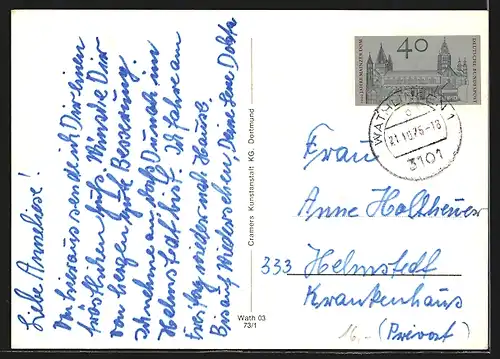 Liebe Anneliese!
Von hieraus sende ich Dir einen
fröstlichen Gruß. Wünsche Dir
von herzen gute Besserung.
Ich nehme an, daß Du noch im
Helmstedt bist. Ich fahre am
Freitag wieder nach Hause.
Bis auf Wiedersehen, Deine Lene
Cramers Kunstanstalt KG. Dortmund
Wath 03
73/1
1000 JAHRE MAINZER DOM
40
DEUTSCHE BUNDESPOST
WATHLINGEN 1
21.10.75-18
3101
Frau
Anne Holtheuer
333 Helmstedt
Krankenhaus
(Privat)